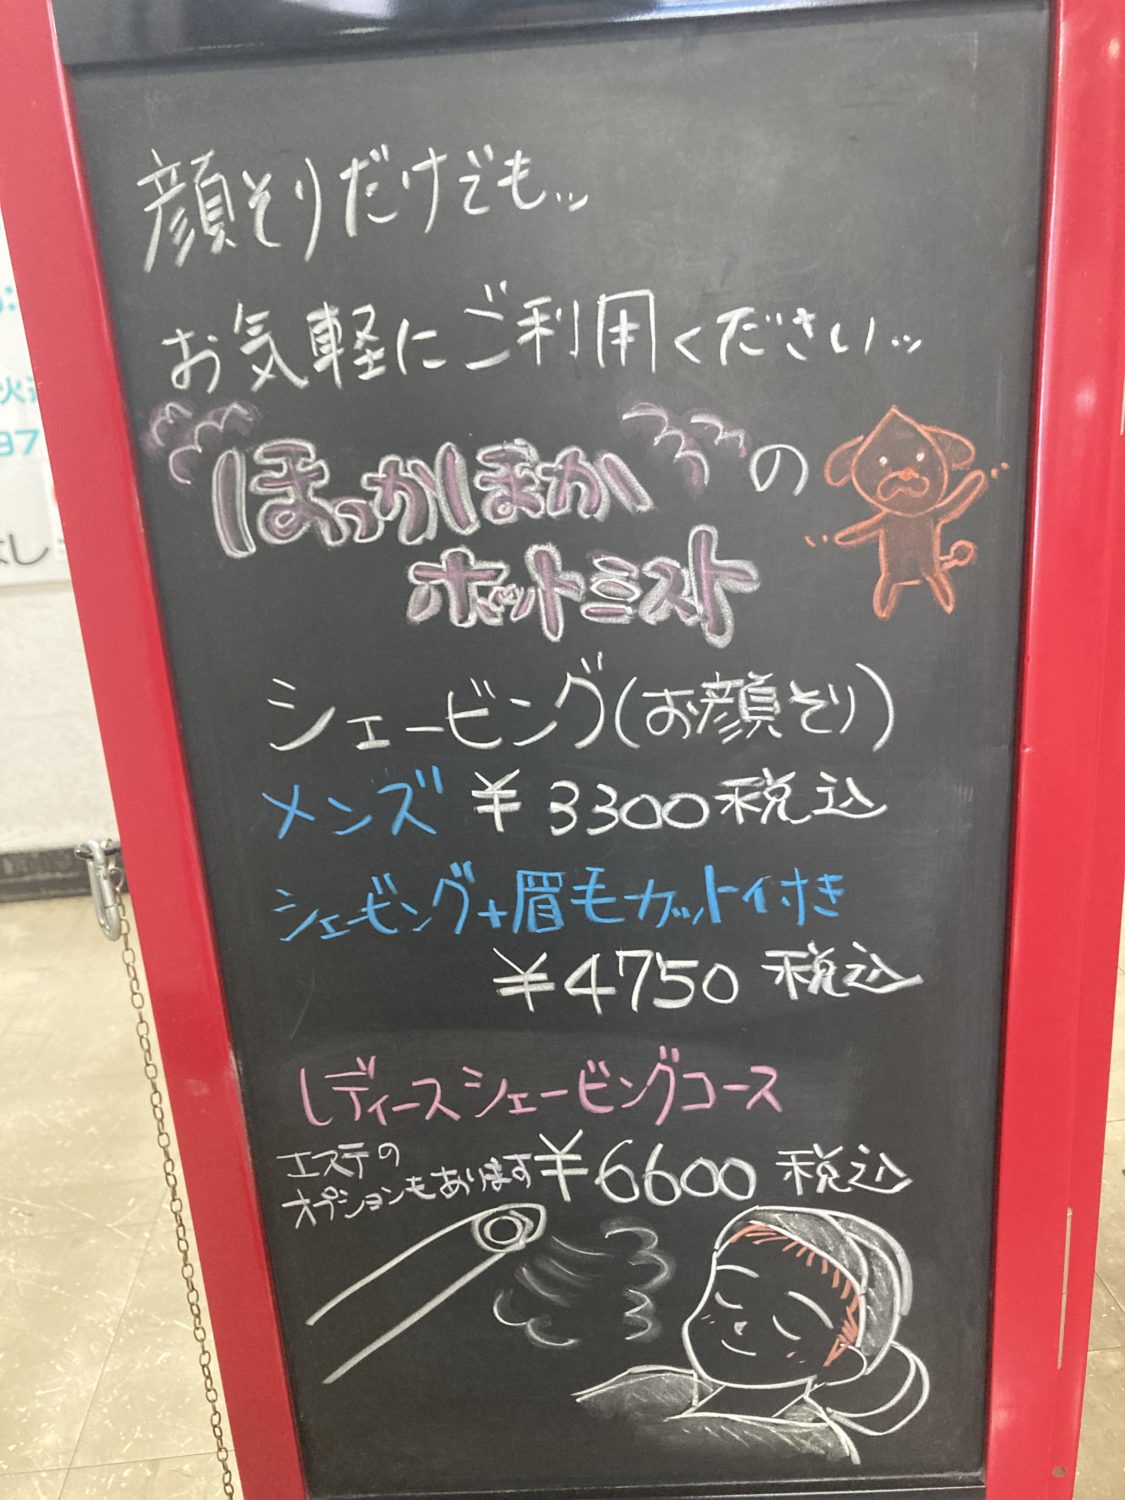 顔そりだけでも〟
お気軽にご利用ください〟
ほっかほか の
ホットミスト
シェービング(お顔そり)
メンズ ¥3300税込
シェービング+眉毛カット付き
¥4750税込
レディースシェービングコース
エステの
オプションもあります ¥6600税込